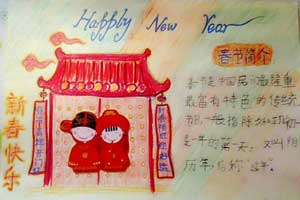 Happly New Year
春节简介
新春快乐
春节是中国民间最隆重
最富有特色的传统
节日,一般指除夕和正月初
一是一年的第一天,又叫阴
历年,俗称“过年”。